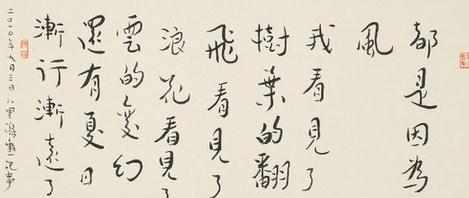 都是因為
風
我看見了
樹葉的翻
飛看見了
浪花看見了
雲的變幻
還有夏日
漸行漸遠了
二〇一〇年九月三日